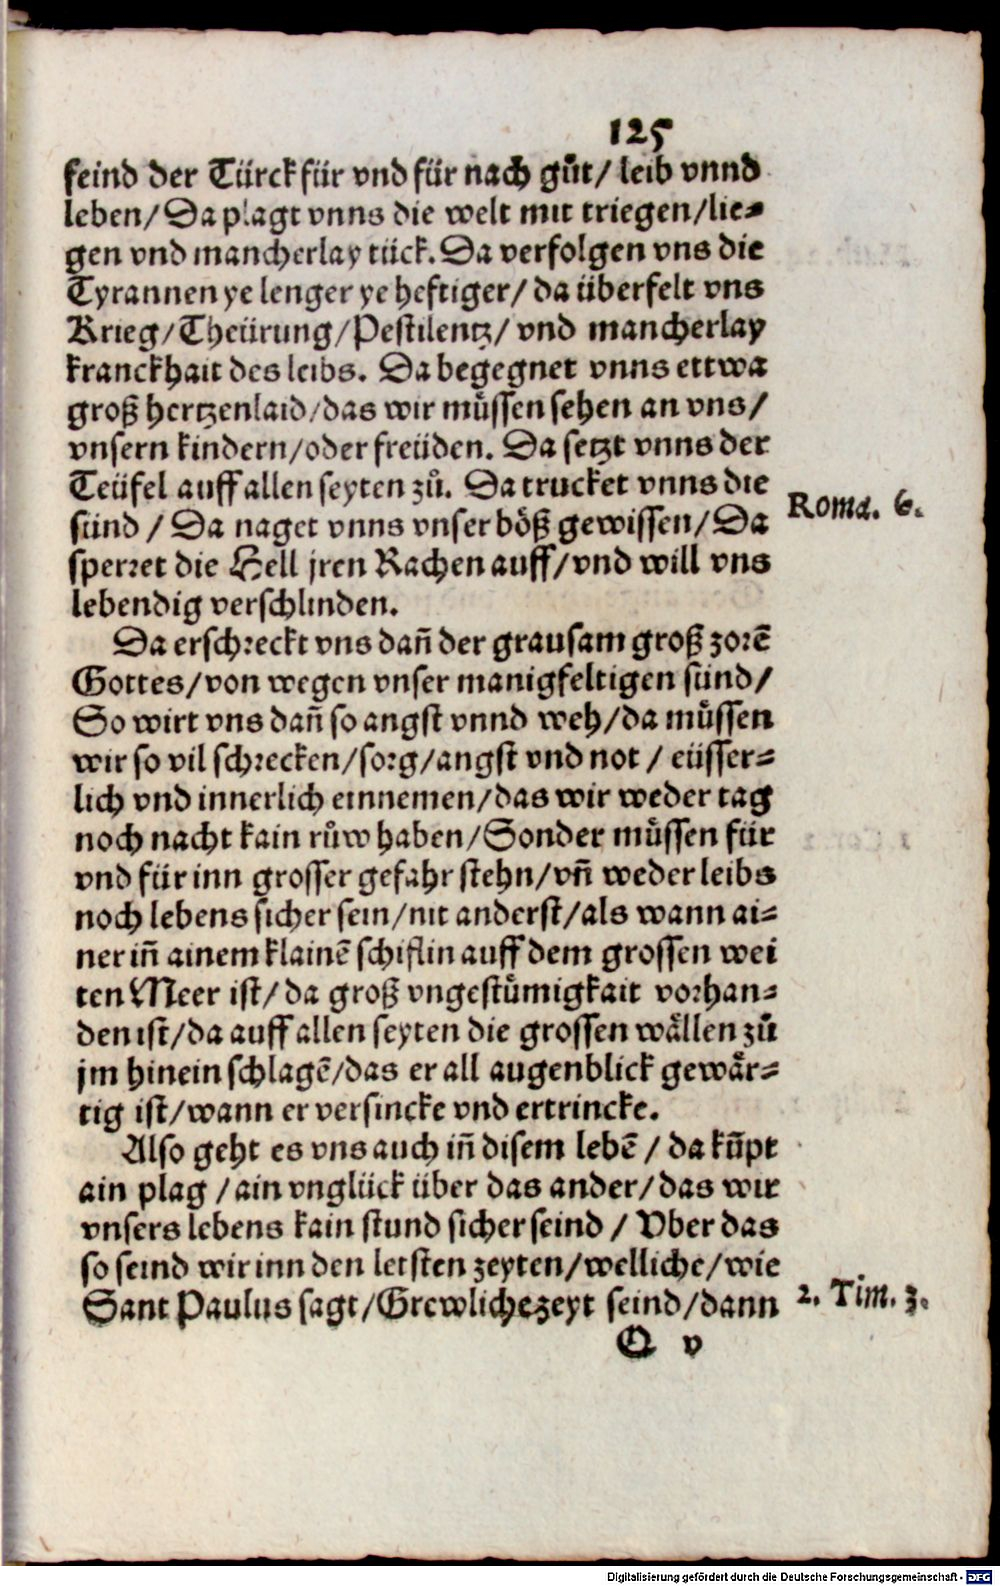 125
feind der Türck für vnd für nach gůt/ leib vnnd
leben/ Da plagt vnns die welt mit triegen/lie-
gen vnd mancherlay tück. Da verfolgen vns die
Tyrannen ye lenger ye hefftiger/ da überfelt vns
Krieg/Theürung/Pestilentz/ vnd mancherlay
kranckhait des leibs. Da begegnet vnns ettwa
groß hertzenlaid/das wir müssen sehen an vns/
vnsern kindern/oder freüden. Da setzt vnns der
Teüfel auff allen seyten zů. Da trucket vnns die
sünd / Da naget vnns vnser böß gewissen/ Da Roma. 6.
sperret die Hell jren Rachen auff/vnd will vns
lebendig verschlinden.
Da erschreckt vns dañ der grausam groß zorē
Gottes/von wegen vnser manigfeltigen sünd/
So wirt vns dañ so angst vnnd weh/da müssen
wir so vil schrecken/sorg/angst vnd not / eüsser-
lich vnd innerlich einnemen/das wir weder tag
noch nacht kain růw haben/Sonder müssen für
vnd für inn grosser gefahr stehn/vñ weder leibs
noch lebens sicher sein/nit anderst/als wann ai-
ner iñ ainem klainē schiflin auff dem grossen wei
ten Meer ist/da groß vngestümigkait vorhan-
den ist/da auff allen seyten die grossen wällen zů
jm hinein schlagē/das er all augenblick gewär-
tig ist/wann er versincke vnd ertrincke.
Also geht es vns auch iñ disem lebē / da kūpt
ain plag /ain vnglück über das ander/das wir
vnsers lebens kain stund sicher seind / Vber das
so seind wir inn den letsten zeyten/welliche/wie
Sant Paulus sagt/Grewliche zeyt seind/dann 2. Tim. 3.
Q v
Digitalisierung gefördert durch die Deutsche Forschungsgemeinschaft - DFG